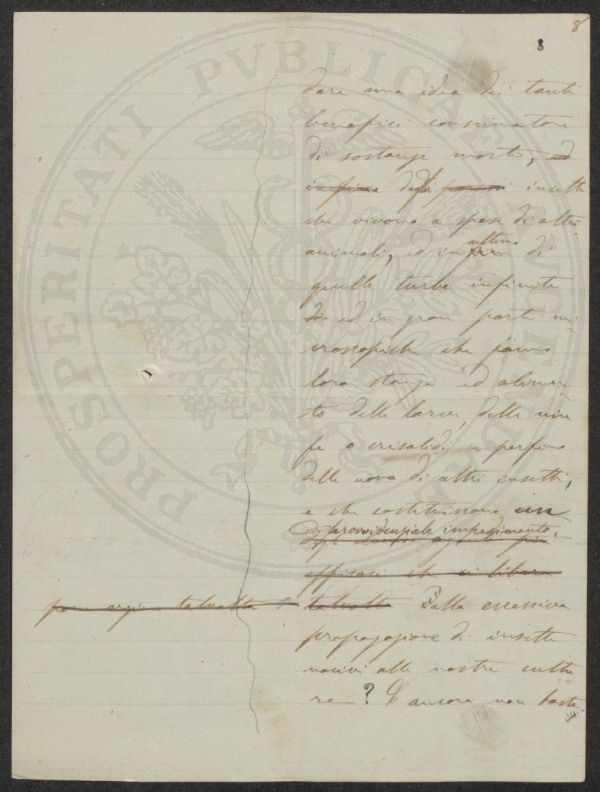 8
8
dare una idea dei tanti
benefici consumatori
di sostanze morte, ed
infine degli insetti
che vivono a spese di altri
animali, ed in ultimo di
quelle turbe infinite
ed in gran parte mi-
croscopiche che fanno
loro stanza ed alimen-
to delle larve, delle nin-
fe o crisalidi e perfino
delle uova di altri insetti,
e che costituiscono un
provvidenziale impedimento
efficaci che ci libera
talvolta Dalla eccessiva
propagazione di insetti
nocivi alle nostre cultu
re? E ancora non baste
PROSPERITATI PVBLICAE